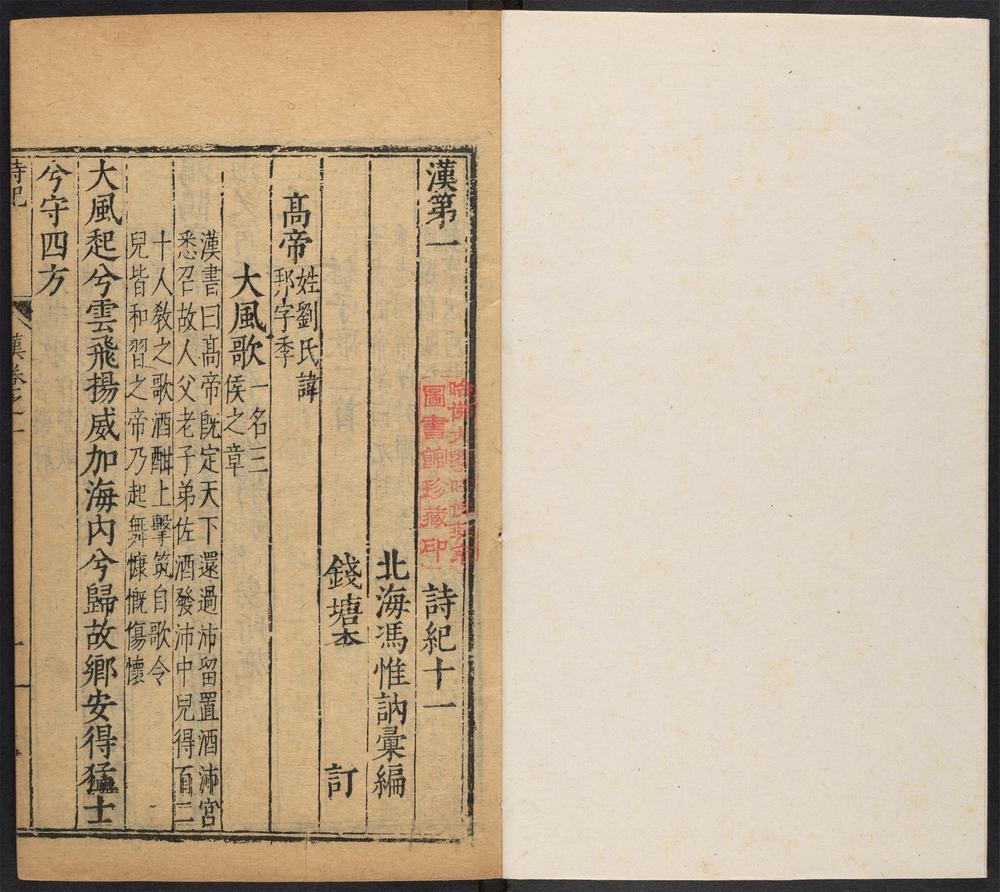 漢第一 詩紀十一
北海馮惟訥彙編
錢塘本 訂
高帝姓劉氏諱
邦字季
大風歌一名三
侯之章
漢書曰高帝既定天下還過沛留置酒沛宮
悉召故人父老子弟佐酒發沛中兒得百二
十人教之歌酒酣上擊筑自歌令
兒皆和習之帝乃起舞慷慨傷懷
大風起兮雲飛揚威加海內兮歸故鄉安得猛士
兮守四方
詩紀 漢卷之一
哈佛大學
圖書館珍藏印